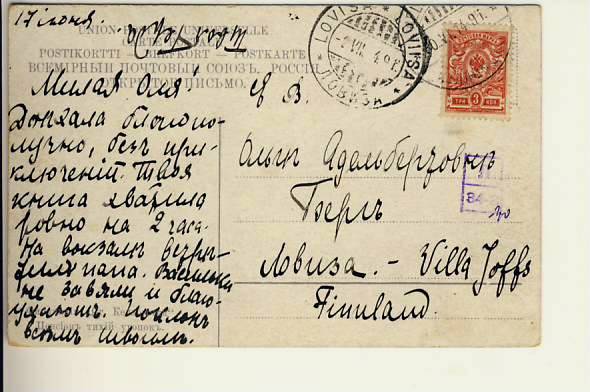 17 іюня.
UNION POSTALE UNIVERSELLE
CARTE POSTALE
POSTIKORTTI — POSTKORT — POSTKARTE
ВСЕМІРНЫЙ ПОЧТОВЫЙ СОЮЗЪ. РОССІЯ
ОТКРЫТОЕ ПИСЬМО.
LOVISA * LOVIISA *
ЛОВИЗА
3 КОП
ТРИ
Милая Оля!
Доѣхала благопо-
лучно, безъ при-
ключеній. Твоя
книга хватила
ровно на 2 часа.
На вокзалѣ встрѣ-
тилъ папа. Васильки
не завяли и благо-
ухаютъ. Поклонъ
всѣмъ твоимъ.
Пансіонъ тихій уголокъ.
Е В.
Ольгѣ Адальбертовнѣ
Бергъ
Ловиза. - Villa Joffs
Finnland.